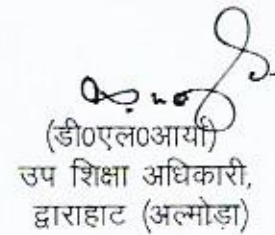 (डी0एल0आर्या)
उप शिक्षा अधिकारी,
द्वाराहाट (अल्मोड़ा)